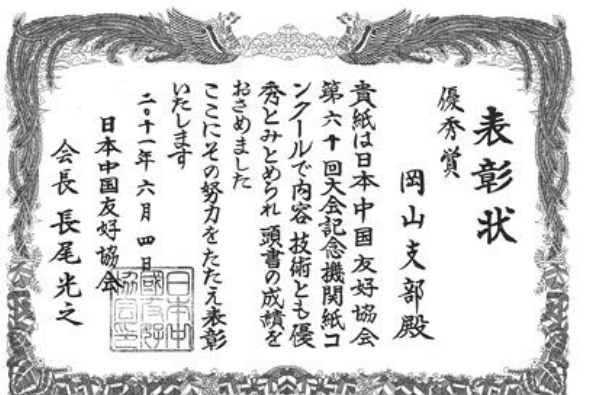 表彰状
優秀賞
岡山支部殿
貴紙は日本中国友好協会
第六十回大会記念機関紙コ
ンクールで内容 技術とも優
秀とみとめられ 頭書の成績を
おさめました
ここにその努力をたたえ表彰
いたします
二〇十一年六月四日
日本中国友好協会
会長 長尾光之
日本中
國友好
協会印